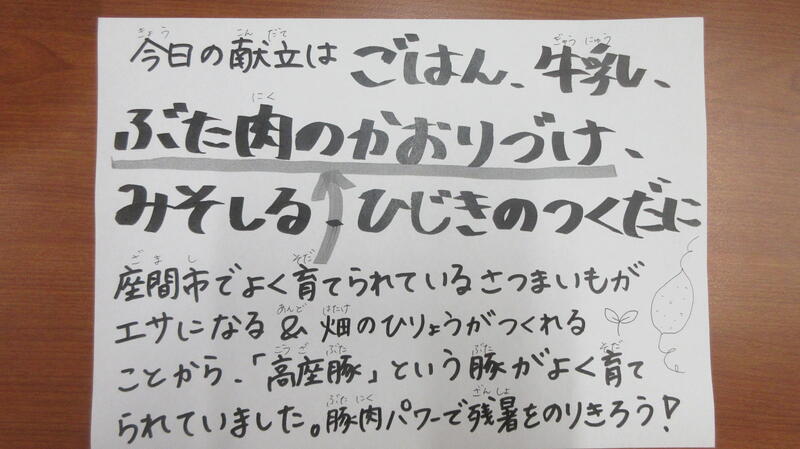 今日の献立は ごはん、牛乳、
ぶた肉のかおりづけ、
みそしる、ひじきのつくだに
座間市でよく育てられているさつまいもが
エサになる & 畑のひりょうがつくれる
ことから、「高座豚」という豚がよく育て
られていました。豚肉パワーで残暑をのりきろう!